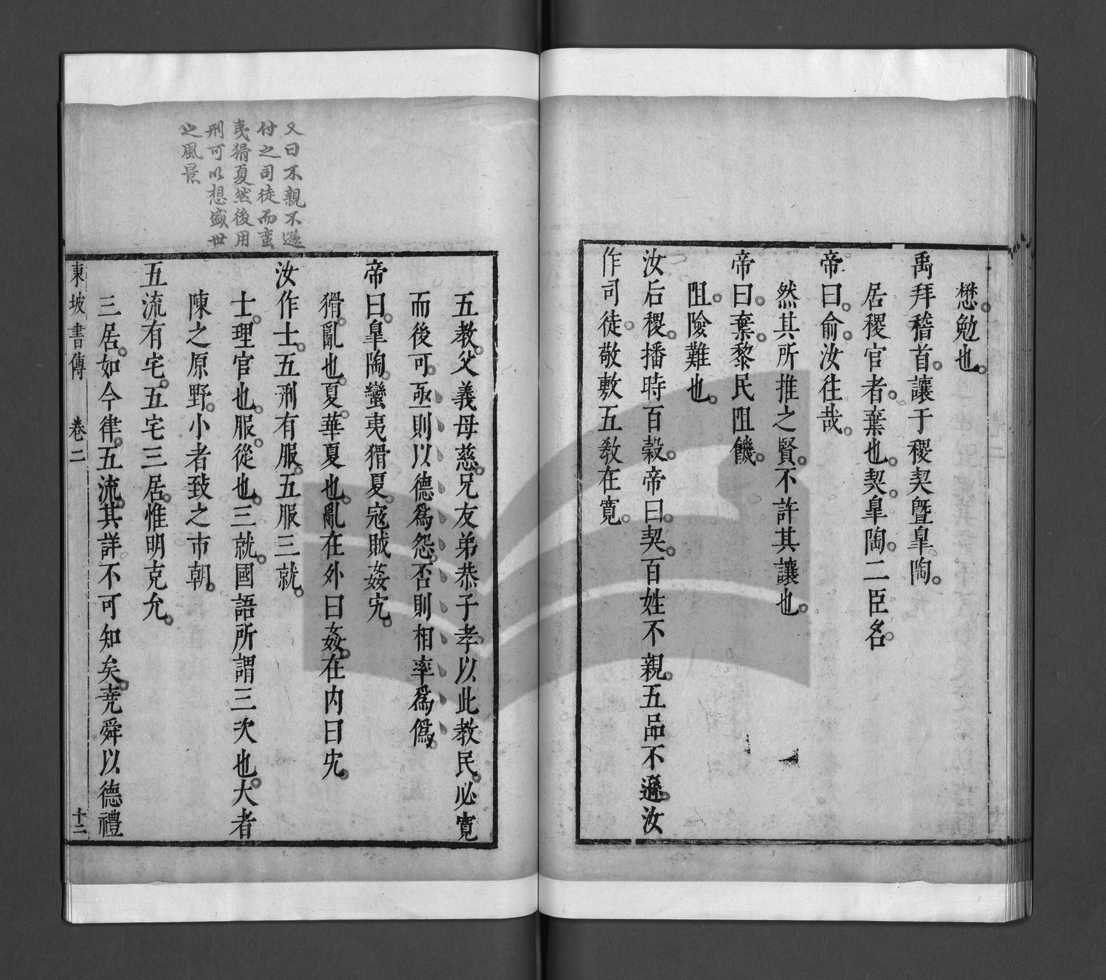 懋勉也。
禹拜稽首。讓于稷契曁臯陶。
居稷官者。棄也。契臯陶。二臣名。
帝曰。俞汝往哉。
然其所推之賢。不許其讓也。
帝曰。棄。黎民阻饑。
阻。險難也。
汝后稷。播時百穀。帝曰。契。百姓不親。五品不遜。汝
作司徒。敬敷五敎。在寬。
五教。父義母慈。兄友弟恭子孝。以此教民。必寛
而後可。亟則以德爲怨。否則相率爲僞。
帝曰。臯陶。蠻夷猾夏。寇賊姦宄。
猾。亂也。夏。華夏也。亂在外曰姦。在内曰宄。
汝作士。五刑有服。五服三就。
士。理官也。服。從也。三就。國語所謂三次也。大者
陳之原野。小者致之市朝。
五流有宅。五宅三居。惟明克允。
三居。如今律。五流。其詳不可知矣。堯舜以德禮
東坡書傳 卷二 十二
又曰不親不遜
付之司徒而蠻
夷猾夏然後用
刑可以想盛世
之風景